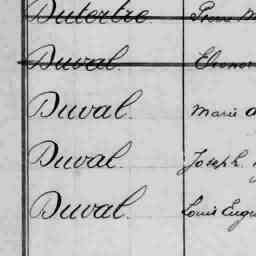 Dutertre. Pierre
Duval. Eleonor
Duval. Marie
Duval. Joseph
Duval. Louis Eugè